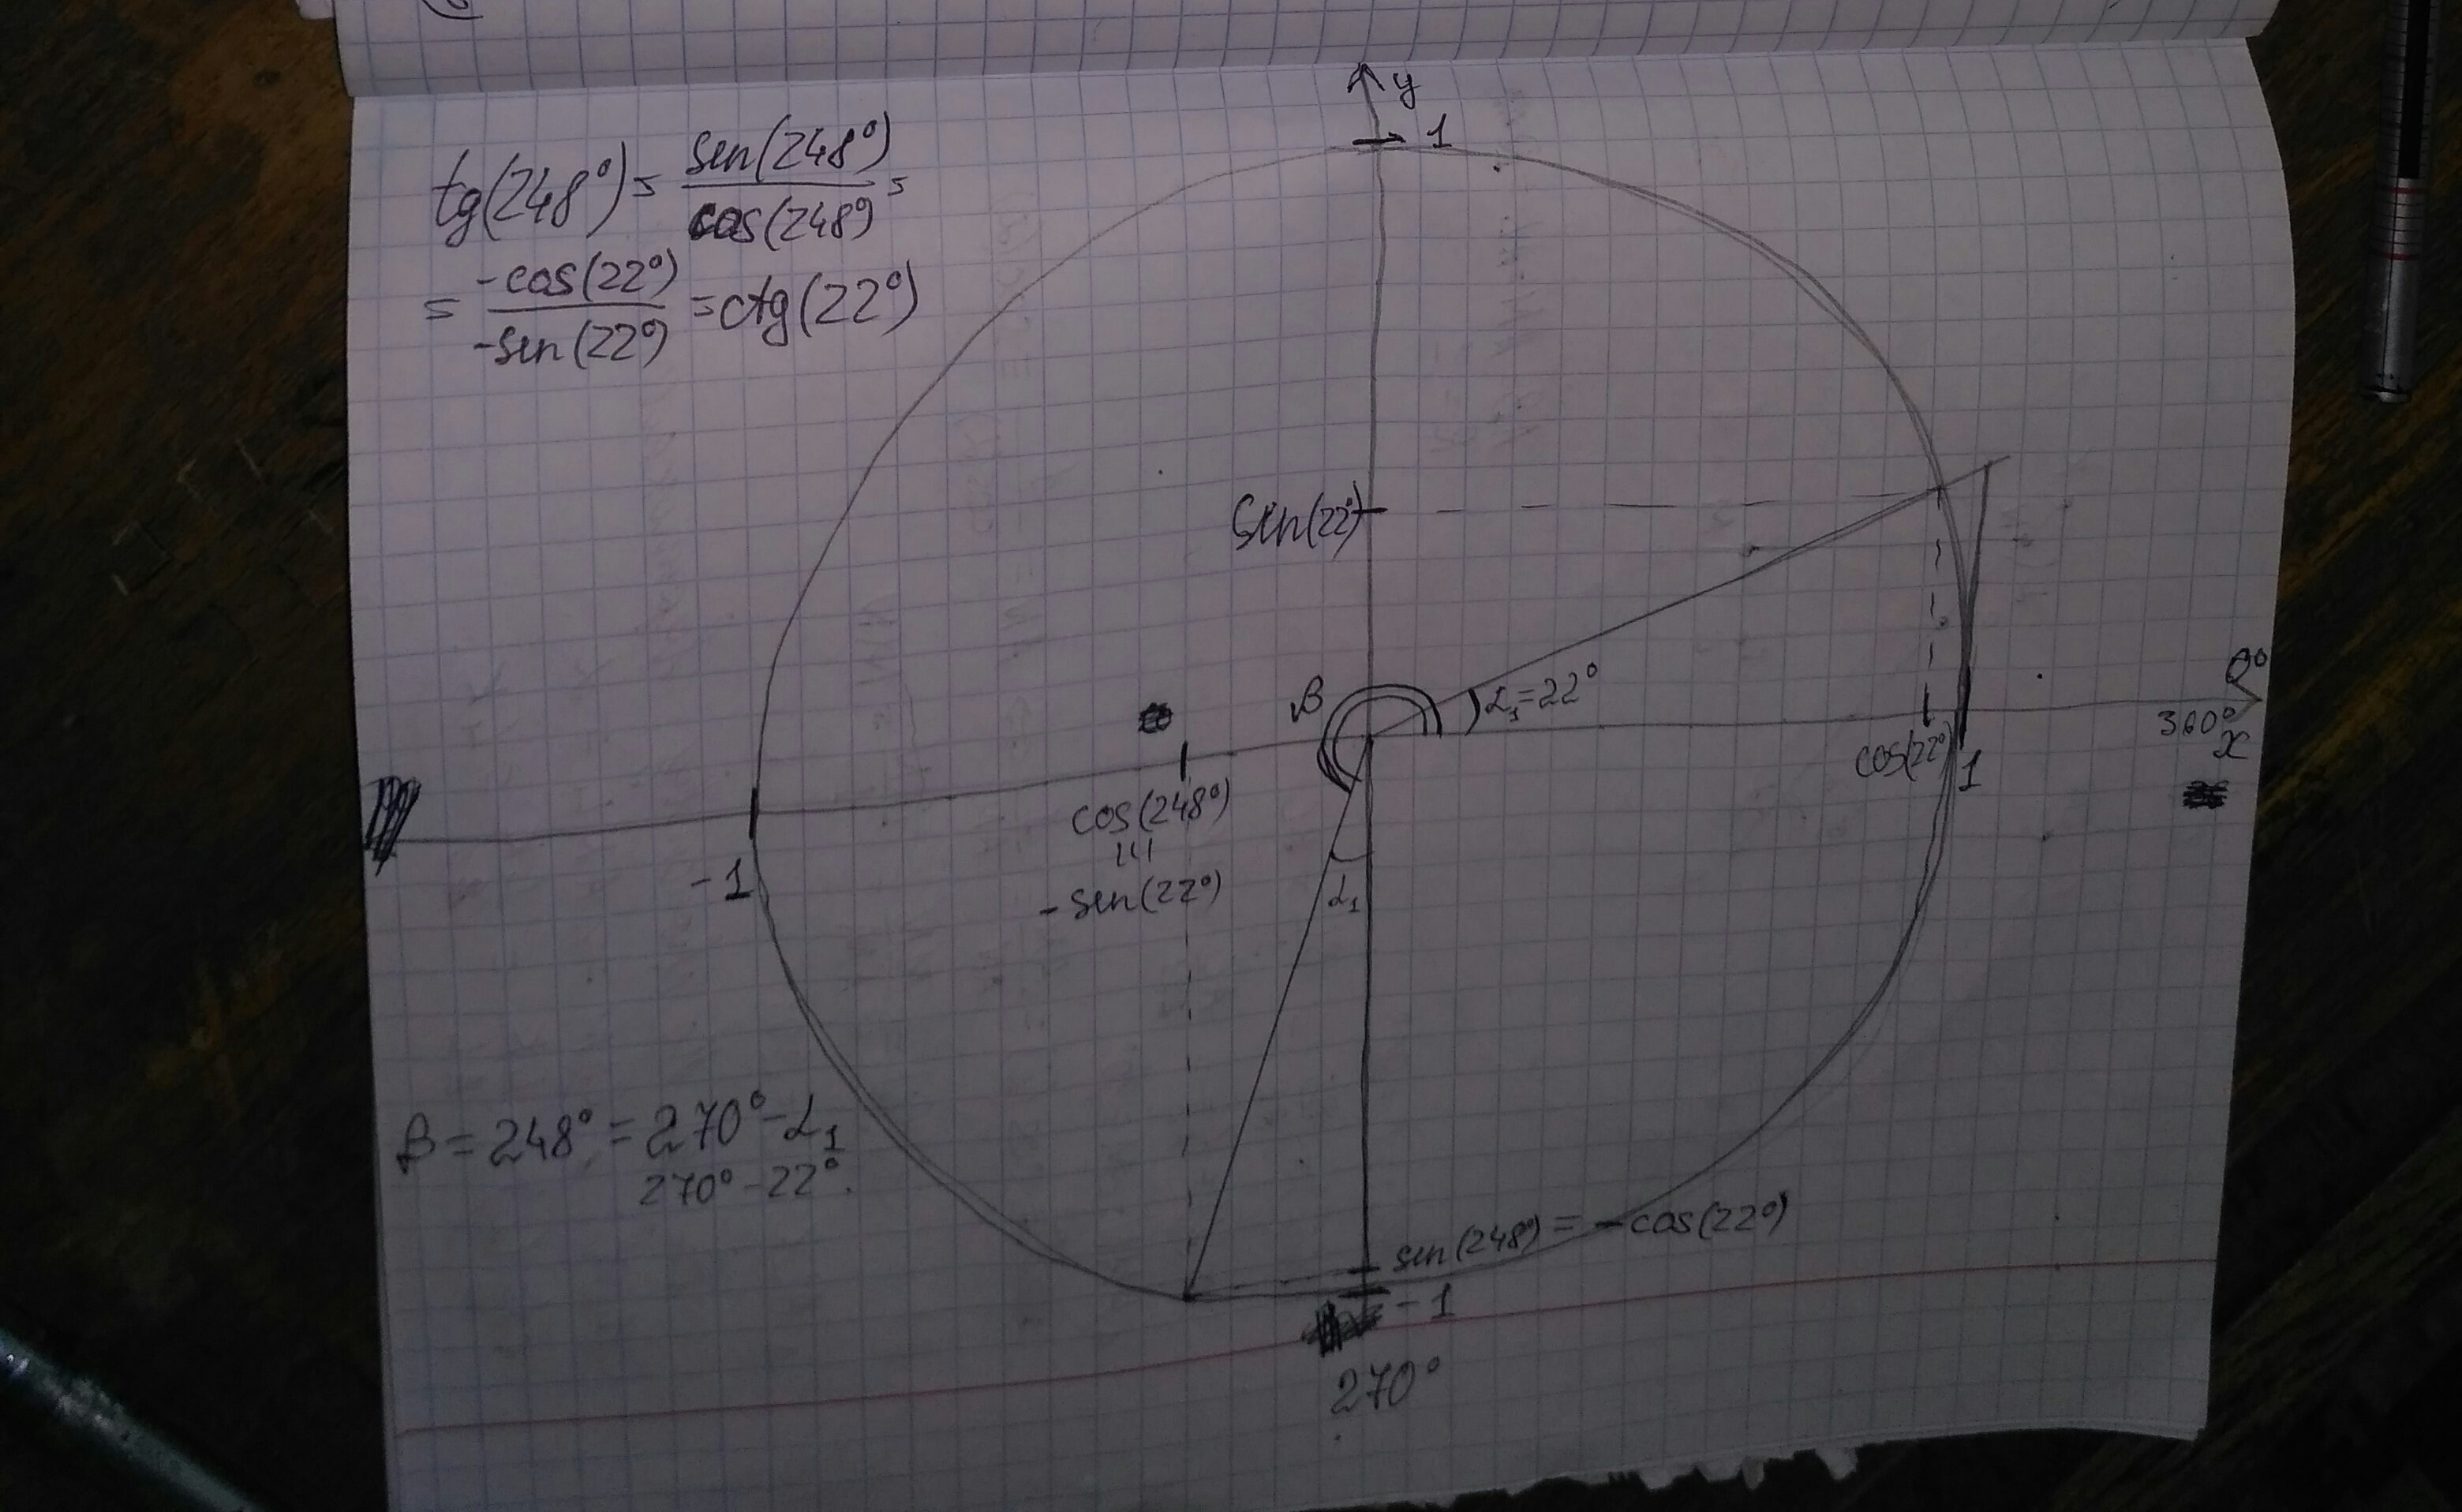 tg(248°) = sen(248°) / cos(248°) =
= -cos(22°) / -sen(22°) = ctg(22°)
y
1
sen(22°)
β
α₁=22°
0°
360°
x
cos(22°)
1
cos(248°)
-sen(22°)
-1
α₁
β = 248° = 270° - α₁
270° - 22°.
sen(248°) = -cos(22°)
-1
270°